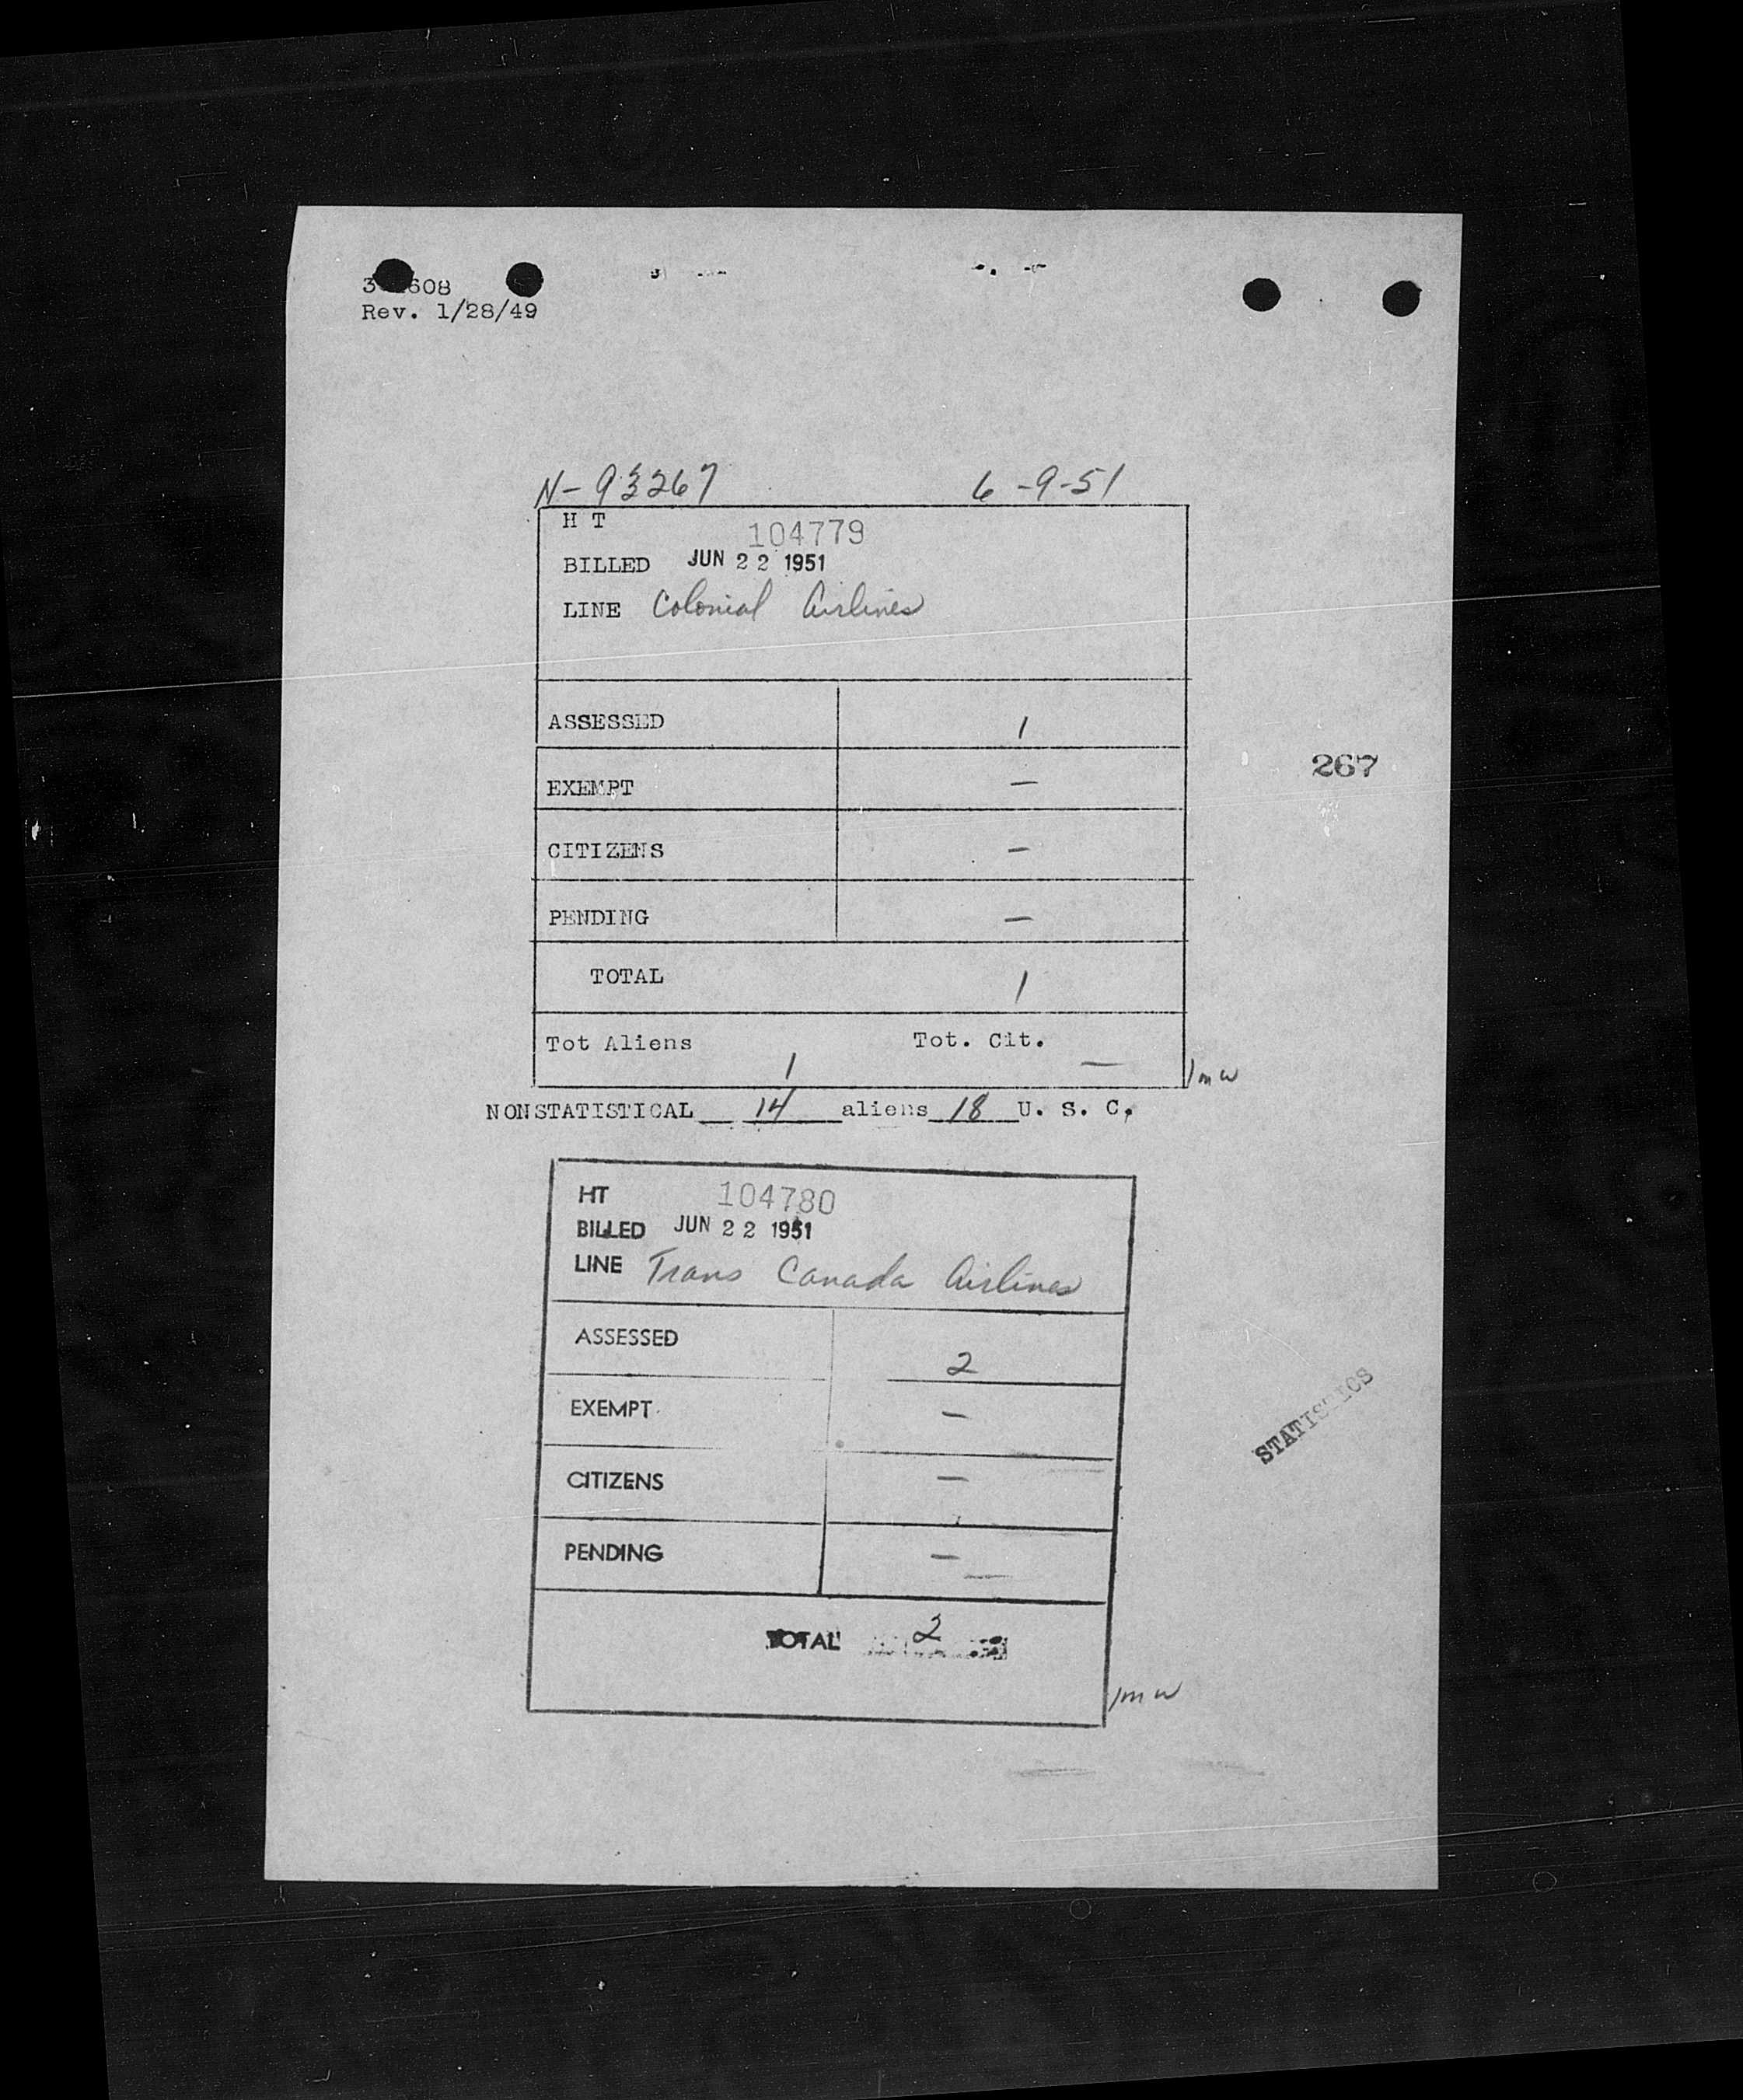 608
Rev. 1/28/49
N-93267 6-9-51
H T 104779
BILLED JUN 22 1951
LINE Colonial Airlines
ASSESSED 1
EXEMPT —
CITIZENS —
PENDING —
TOTAL 1
Tot Aliens 1 Tot. Cit. —
mw
NONSTATISTICAL 14 aliens 18 U. S. C.
267
HT 104780
BILLED JUN 22 1951
LINE Trans Canada Airlines
ASSESSED 2
EXEMPT —
CITIZENS —
PENDING —
TOTAL 2
mw
STATISTICS